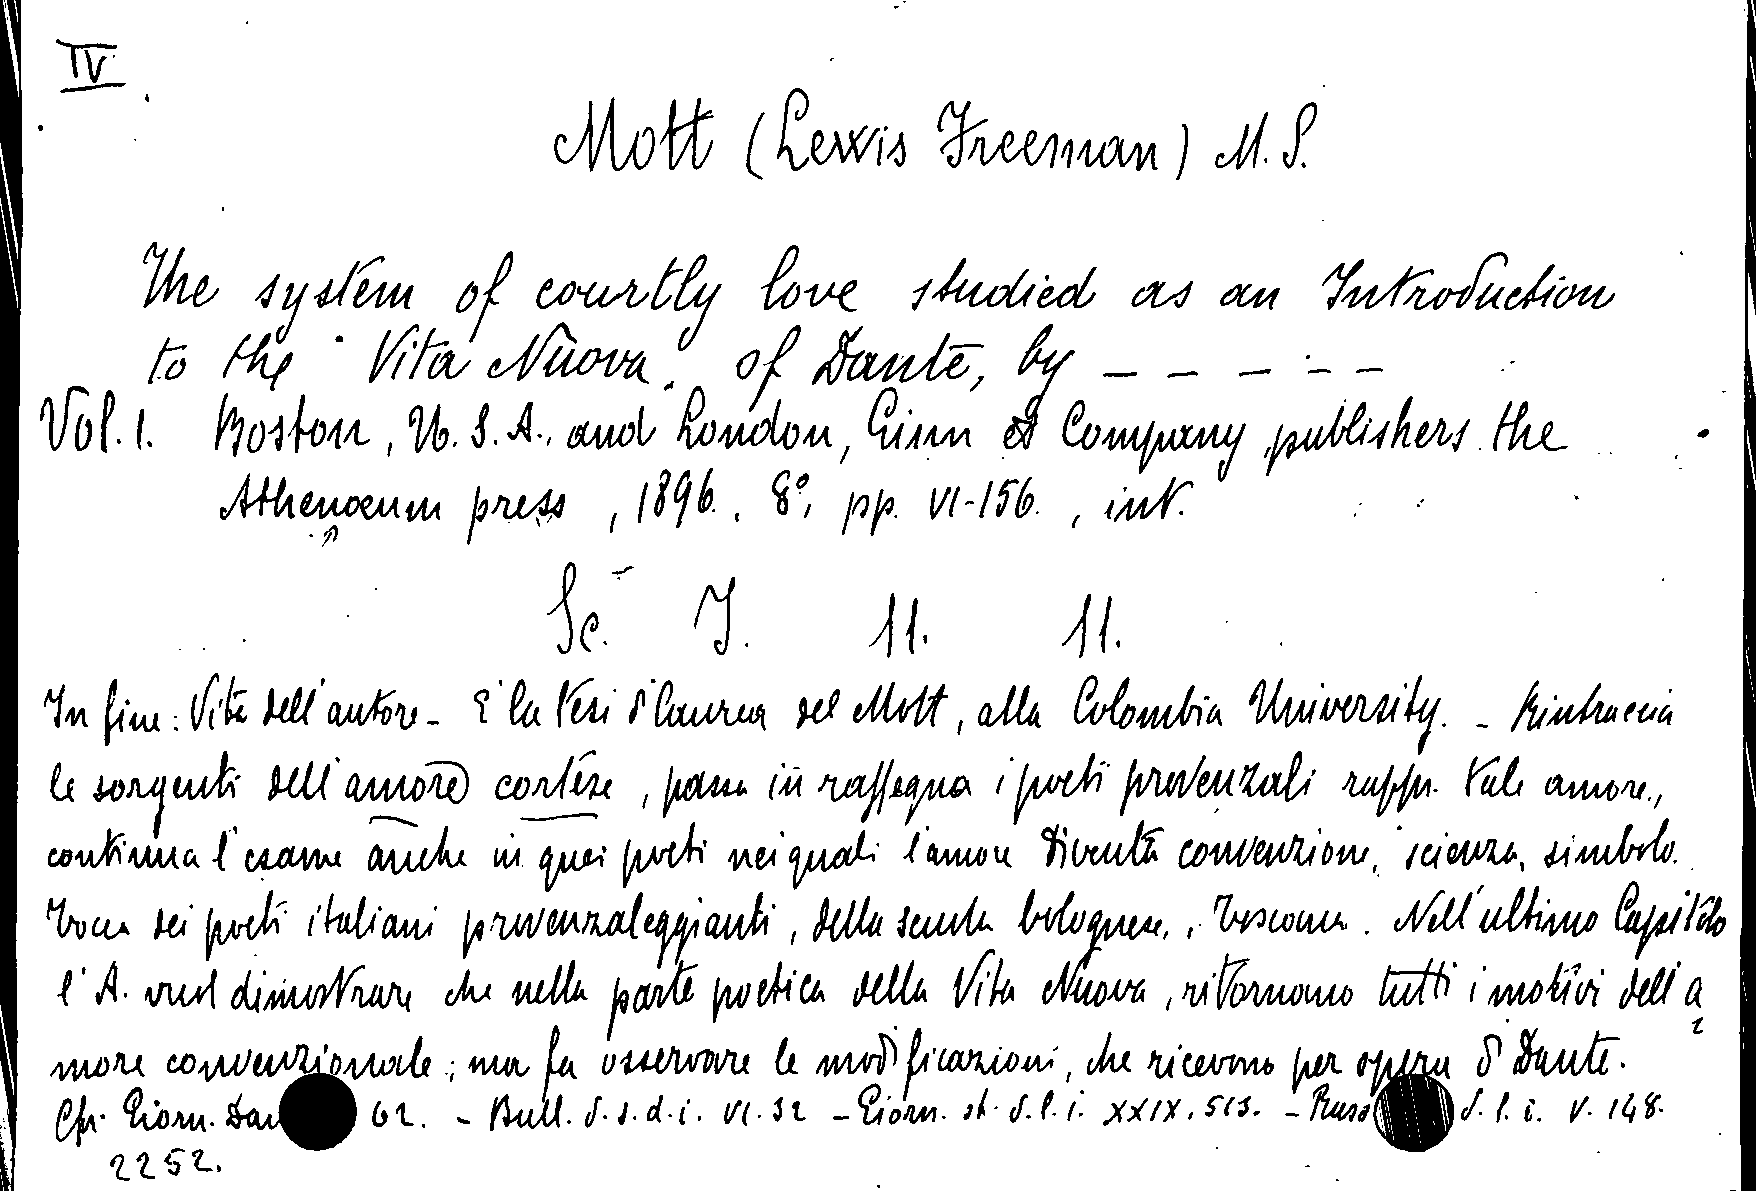 IV
Mott (Lewis Freeman) M. S.
The system of courtly love studied as an Introduction
to the "Vita Nuova" of Dante, by _ _ _ _ _
Vol. I. Boston, U. S. A., and London, Ginn et Company publishers the
Athenaeum press, 1896. 8º, pp. VI-156., int.
Sc. I. 11. 11.
In fine: Vita dell'autore - È la tesi di laurea del Mott, alla Colombia University. - Rintraccia
le sorgenti dell'amore cortese, passa in rassegna i poeti provenzali rappr. tale amore,
continua l'esame anche in quei poeti nei quali l'amore diventa convenzione, scienza, simbolo.
Tocca dei poeti italiani provenzaleggianti, della scuola bolognese, toscana. Nell'ultimo Capitolo
l'A. vuol dimostrare che nella parte poetica della Vita Nuova, ritornano tutti i motivi dell'a
more convenzionale; ma fa osservare le modificazioni, che ricevono per opera di Dante.
Cfr. Giorn. Dan 62. - Bull. d. s. d. i. VI. 32 - Giorn. st. d. l. i. XXIX. 513. - Rass d. l. i. V. 148.
2252.